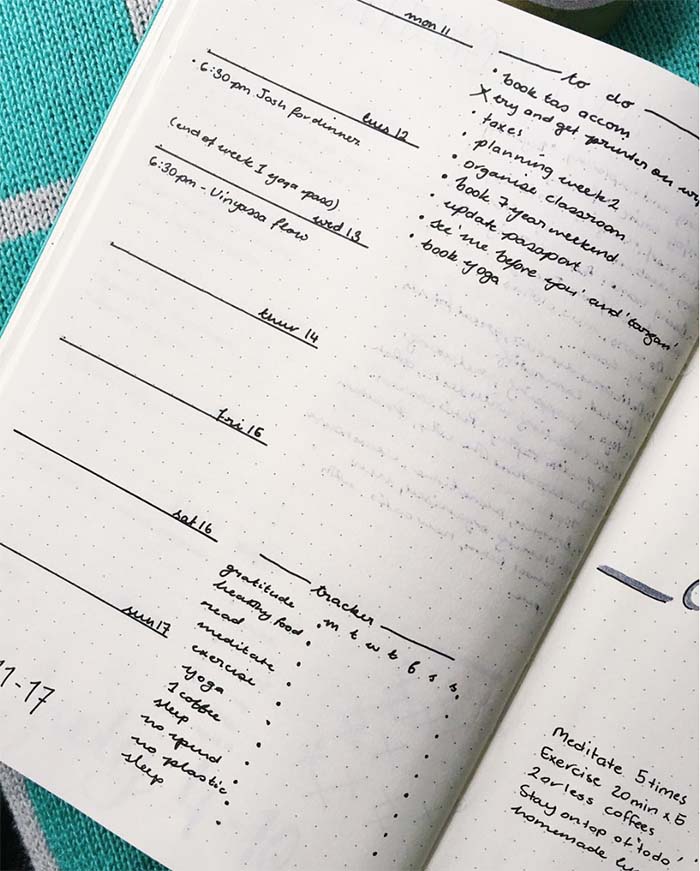 mon 11
tues 12
· 6:30pm Josh for dinner
(end of week 1 yoga pass)
wed 13
6:30pm - Vinyassa flow
thur 14
fri 15
sat 16
sun 17
11-17
to do
· book tas accom
x try and get printer on
· taxes
· planning week 2
· organise classroom
· book 7 year weekend
· update passport
· see 'me before you' and 'tarzan'
· book yoga
tracker
m t w t f s s
gratitude
healthy food
read
meditate
exercise
yoga
1 coffee
sleep
no spend
no plastic
sleep
Meditate 5 times
Exercise 20min x 5
2 or less coffees
Stay on top of 'todo'
homemade